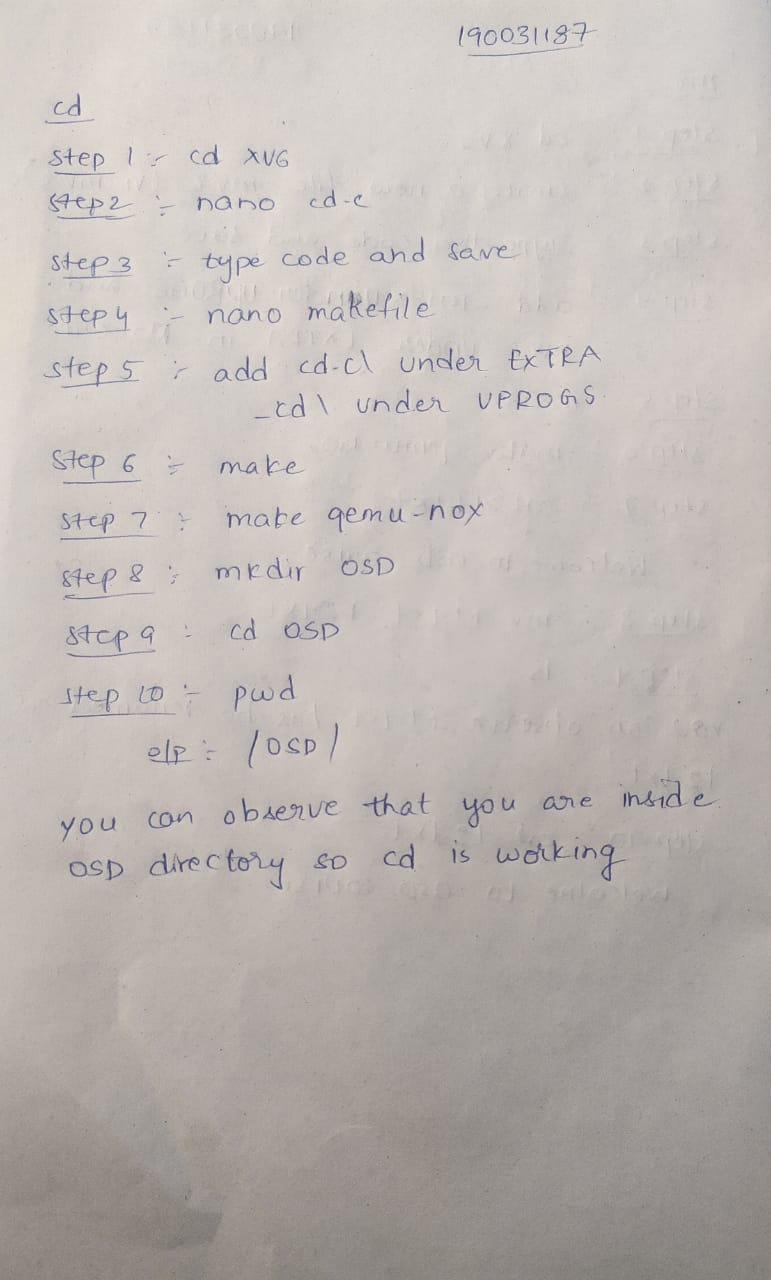 190031187
cd
Step 1 :- cd XV6
Step 2 :- nano cd.c
Step 3 :- type code and save
Step 4 :- nano makefile
Step 5 :- add cd.c\ under EXTRA
_cd\ under UPROGS.
Step 6 :- make
Step 7 :- make qemu-nox
Step 8 :- mkdir OSD
Step 9 :- cd OSD
Step 10 :- pwd
o/p :- /OSD/
you can observe that you are inside
OSD directory so cd is working